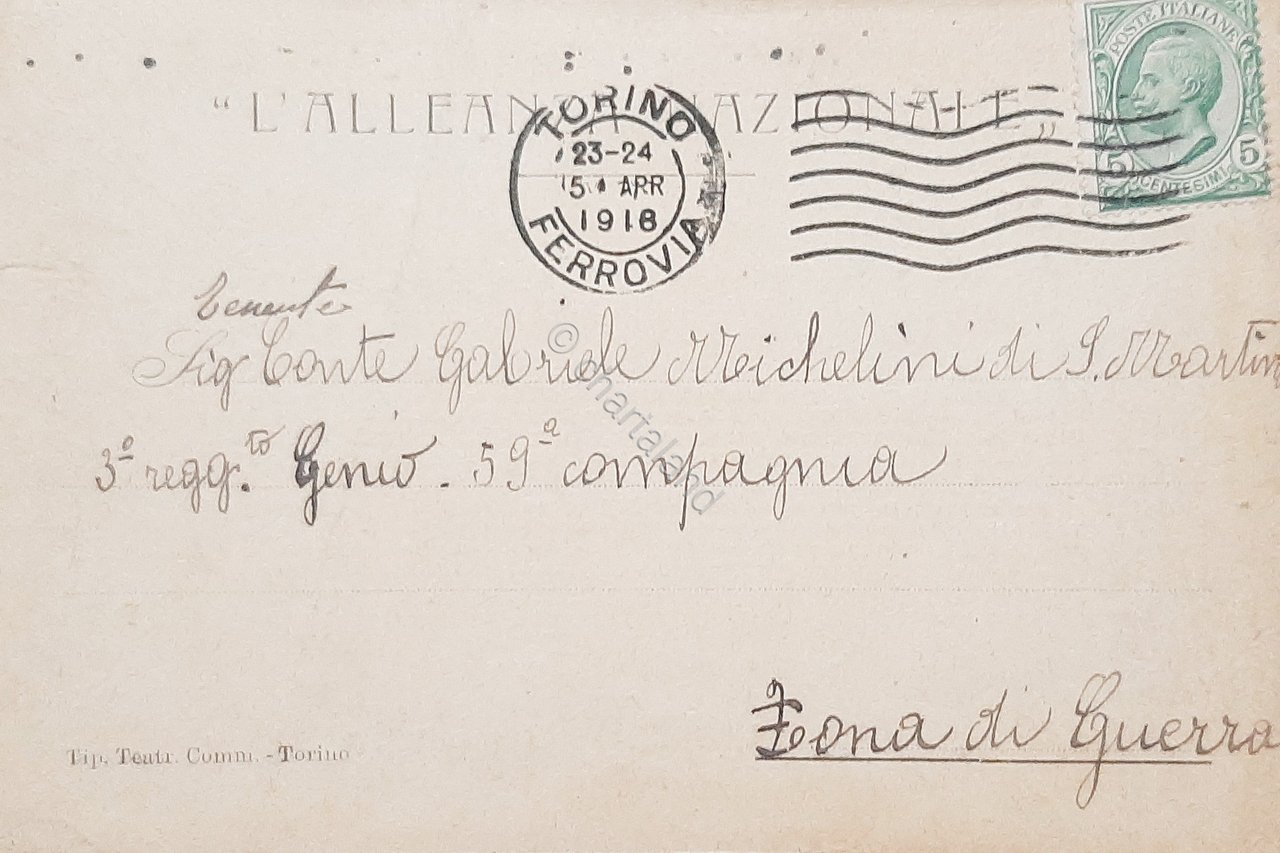 "L'ALLEANZA NAZIONALE„
POSTE ITALIANE
5 CENTESIMI 5
TORINO
23-24
5 APR
1918
FERROVIA
Tenente
Sig Conte Gabriele Michelini di S. Martin
3º regg.to Genio - 59ª compagnia
© chartaland
Zona di Guerra
Tip. Teatr. Comm. - Torino